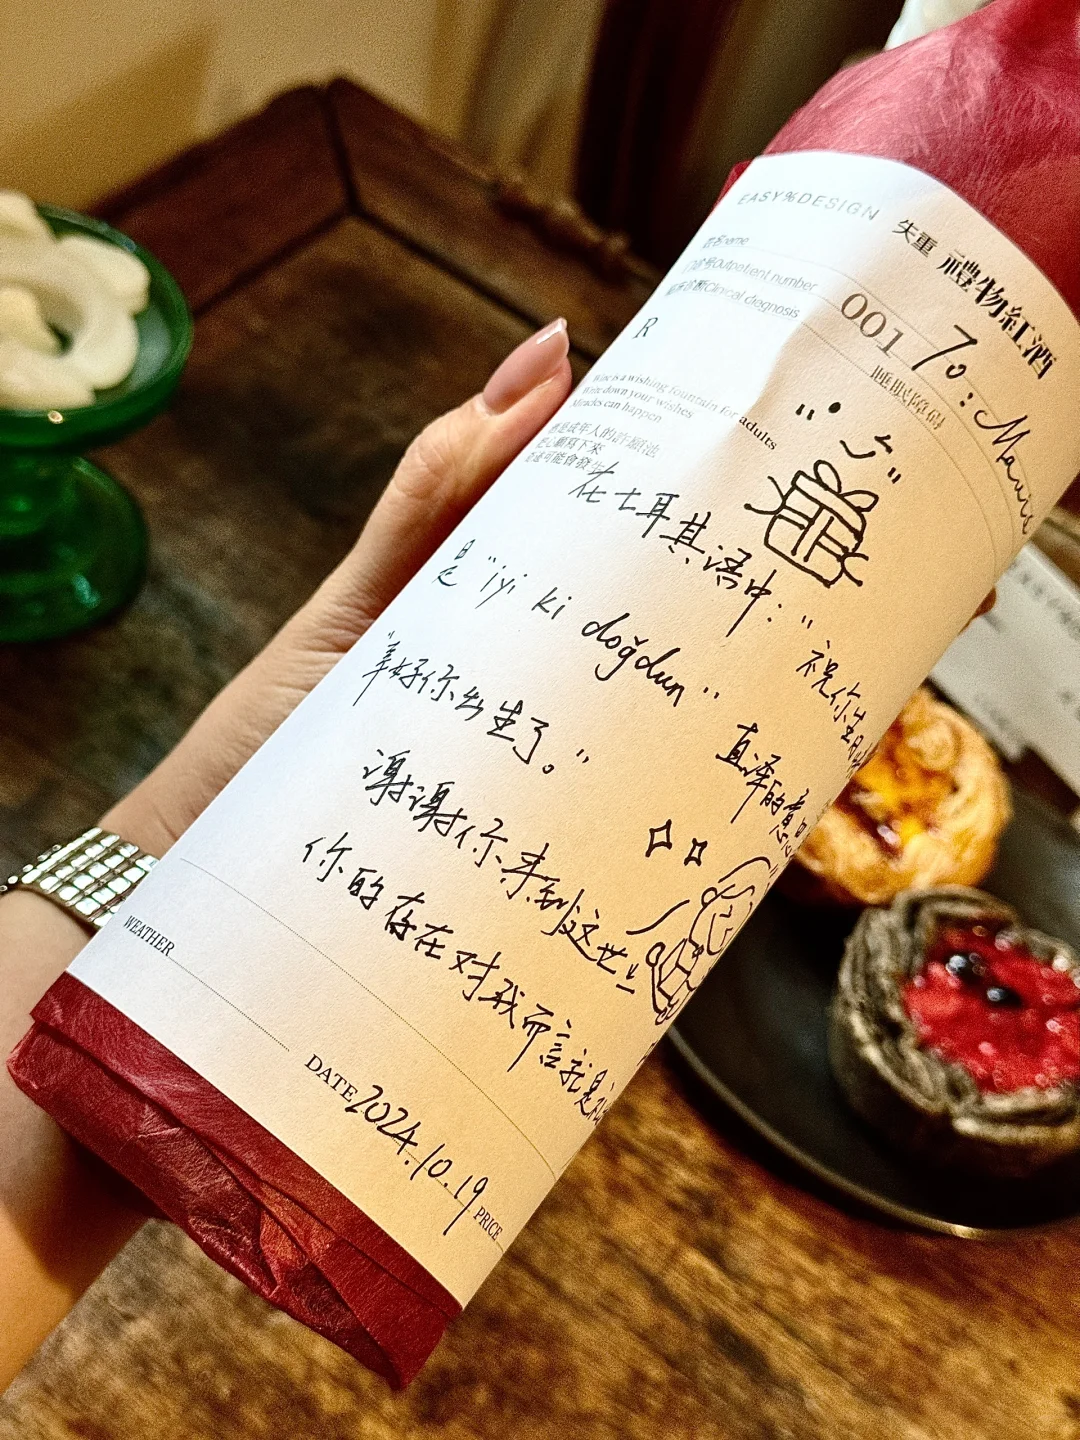 EASY%DESIGN
失重 禮物紅酒
姓名name
门诊号Outpatient number
001
临床诊断Clinical diagnosis
睡眠障碍
To: Mavis
R
Wine is a wishing fountain for adults
Write down your wishes
Miracles can happen
酒是成年人的許願池
把心願寫下來
奇迹可能會發生
在土耳其语中：“祝你生日
是“iyi ki doğdun”
直译的意
“幸好你出生了。”
谢谢你来到这世上
你的存在对我而言就是
WEATHER
DATE 2024.10.19
PRICE